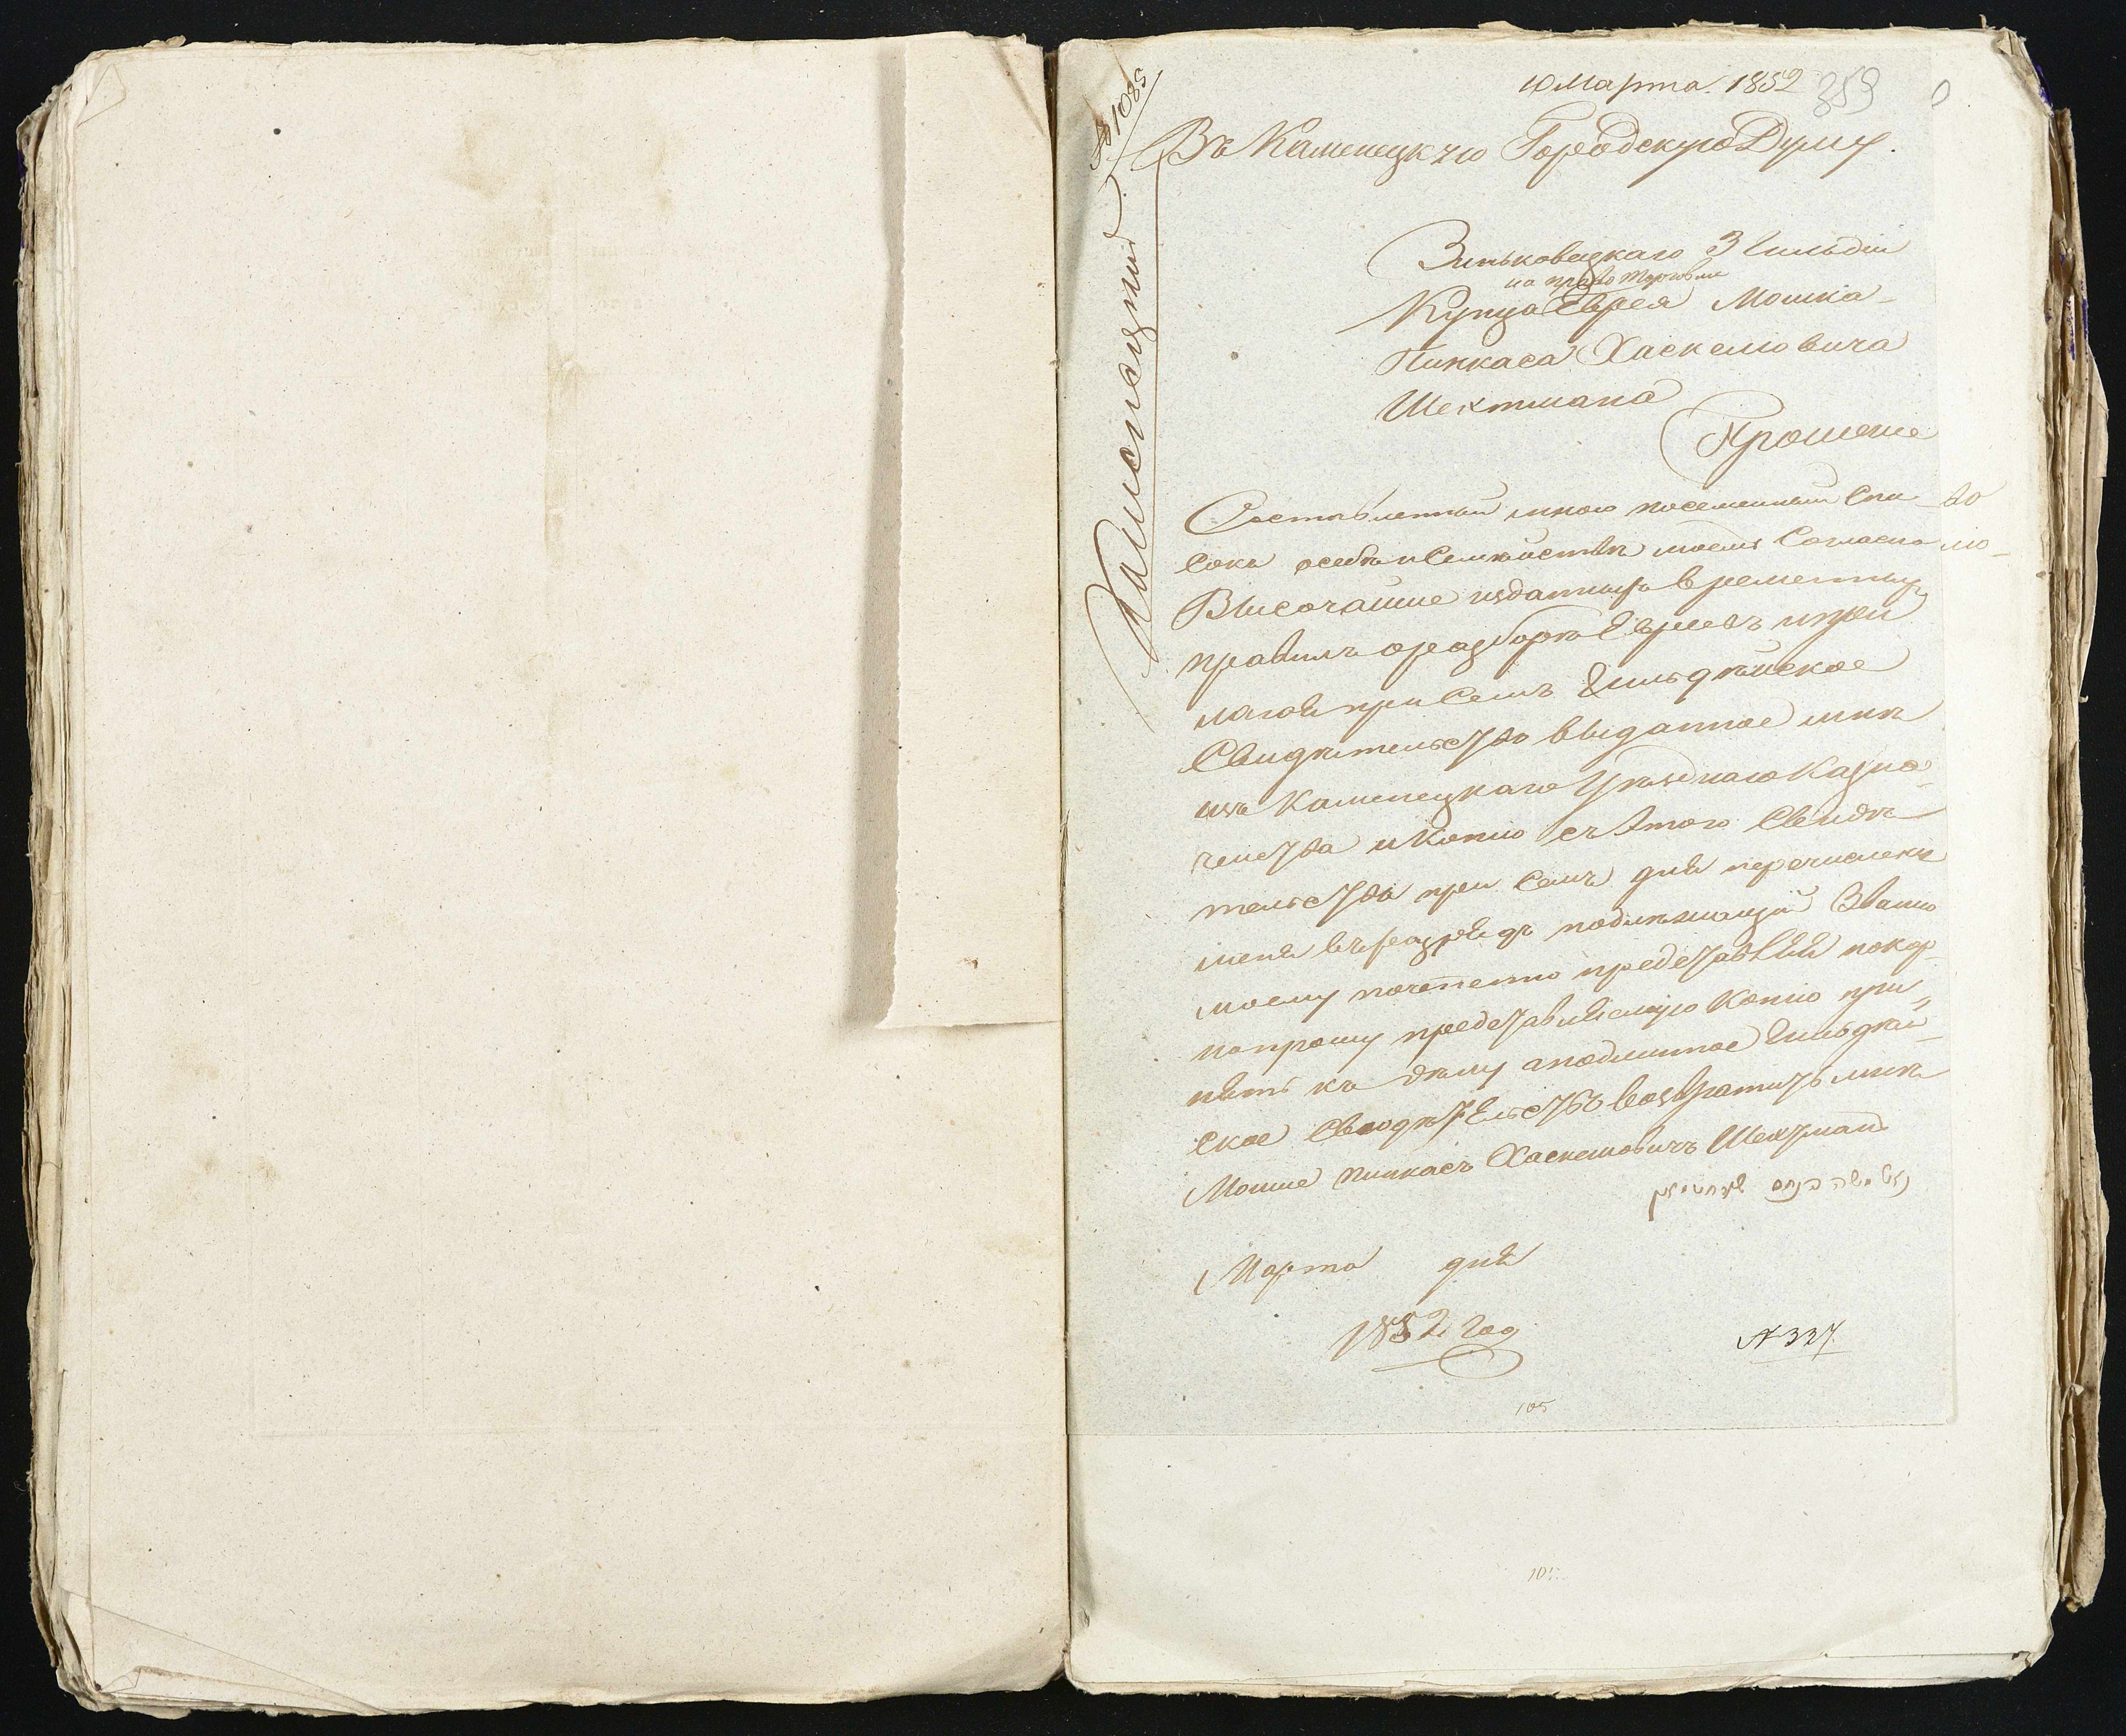 10 Марта 1852 359
№ 1085
Въ Каменецкую Городскую Думу.
Зиньковецкаго 3 Гильдіи
на право торговли
Купца Еврея Мошка
Пинкаса Хаскелiовича
Шехтмана
Прошеніе
Составленный мною посемейный Спи
сокъ особъ и Семействъ моемъ Согласно
Высочайше изданныхъ временныхъ
правилъ о разборѣ Евреевъ и при
логая при Семъ Гильдѣйское
Свидѣтельство выданное мнѣ
изъ Каменецкаго Уѣзднаго Казна-
чейства и Копію съ Этого Свидѣ
тельства при Семъ для перечисленія
меня въ разрядъ подлежащій Званію
моему почтенно представляя покор
но прошу представляемую Копію при„
нять къ дѣлу а подлинное Гильдѣй-
ское Свидѣтельство возвратить мнѣ
Мошко Пинкасъ Хаскелiовичъ Шехтманъ
משה פנחס שעכטמאן
Марта дня
1852 год
№ 337
105